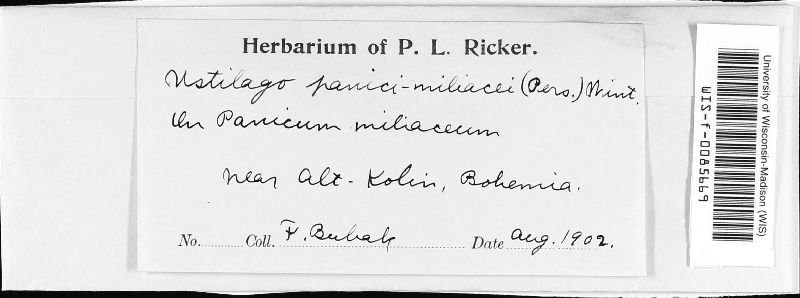 Herbarium of P. L. Ricker.
Ustilago panici-miliacei (Pers.) Wint.
On Panicum miliaceum
near Alt-Kolin, Bohemia.
No. Coll. F. Bubak Date Aug. 1902.
University of Wisconsin-Madison (WIS)
WIS-f-0085669